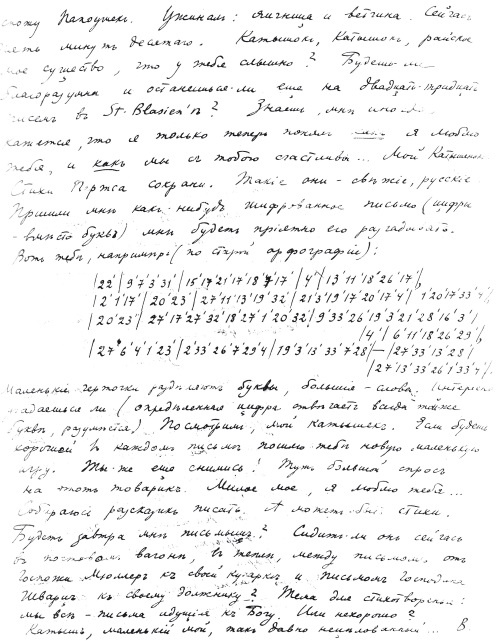 Папочкѣ. Ужинал: яичница и ветчина. Сейчас
минутъ десятаго. Катышокъ, Катышокъ, райское
мое существо, что у тебя слышно? Будешь ли
благоразумна и останешься-ли еще на двадцать-тридцать
въ St. Blasien'ѣ? Знаешь, мнѣ иногда
кажется, что я только теперь понялъ я люблю
тебя, и какъ мы съ тобою счастливы... Мой Катышонокъ
Стихи сохрани. Такіе они - свѣжіе, русскіе.
Пришли мнѣ как-нибудь шифрованное письмо (цифры
вмѣсто буквъ) мнѣ будетъ пріятно его разгадывать.
Вотъ тебѣ, напримѣръ (по старой орфографіи):
|22'|9'7'3'31'|15'17'21'17'18'7'17'|4'|13'11'18'26'17'|
|2'1'17'|20'23'|27'11'13'19'32'|21'3'19'17'20'17'4'|1'20'17'33'4'|
|20'23'|27'17'27'32'18'27'1'20'32'|9'33'26'19'3'21'28'16'3'|
|4'|6'11'18'26'29'|
|27'6'4'1'23'|2'33'26'7'29'4|19'3'13'33'7'28|—|27'33'13'28|
|27'13'33'26'1'33'4'|
Маленькіе черточки раздѣляютъ буквы, большіе - слова. Интересно
угадаешься ли (опредѣленная цифра отвѣчаетъ всегда той-же
буквѣ, разумѣется) Посмотримъ, мой катышенекъ. Если будешь
хорошей въ каждомъ письмѣ пошлю тебѣ новую маленькую
игру. Ты же еще снимись! Тутъ большой спросъ
на этотъ товарикъ. Милое мое, я люблю тебя...
Собираюсь разсказикъ писать. А можетъ-быть стихи.
Будетъ завтра мнѣ письмышъ? Сидитъ-ли онъ сейчасъ
въ почтовомъ вагонѣ, въ теплѣ, между письмомъ отъ
Госпожи Мюллеръ къ своей кухаркѣ и письмомъ Господина
Шварцъ къ своему должнику? Тема для стихотворенія:
мы всѣ - письма идущія къ Богу. Или нехорошо?
Катышъ, маленькій мой, такъ давно нецѣлованный... В